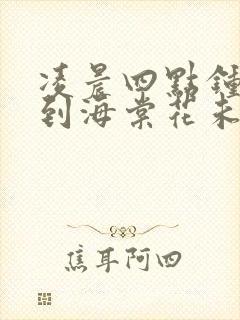 凌晨四點鍾
到海棠花未
焦耳阿四